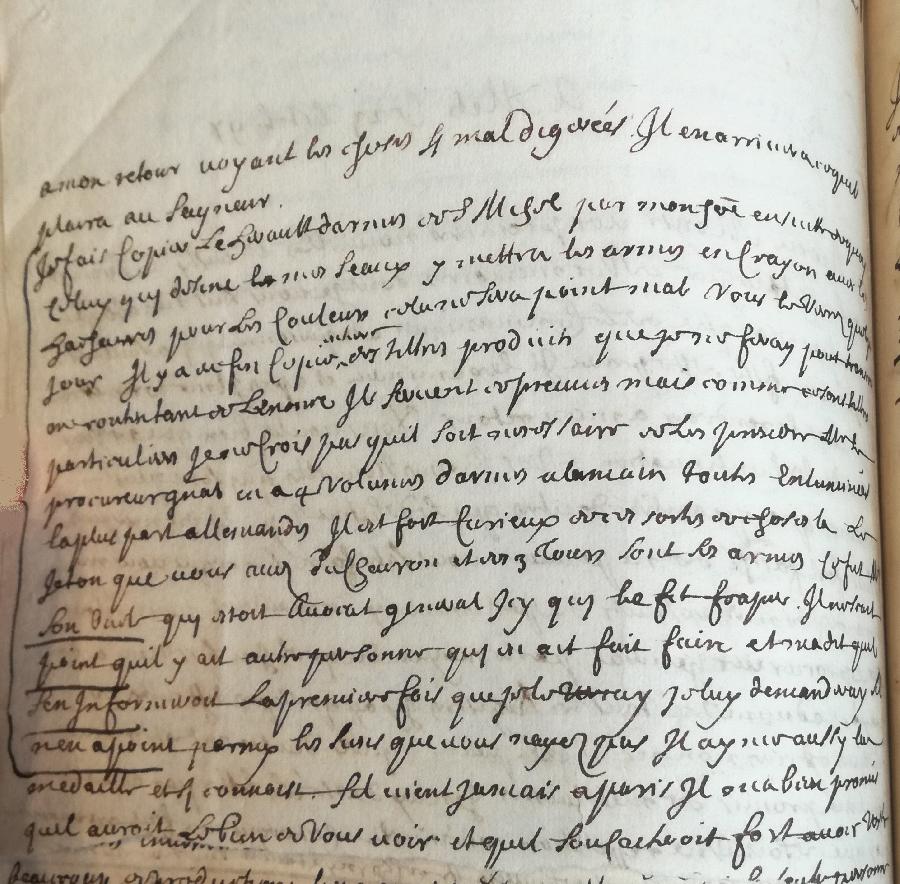 a mon retour voyant les choses sy mal digerées. Il en arrivera ce quil
plaira au Seigneur.
Je fais Copier Le herault darmes de S Michel par
celuy qui desine les mes seaux y mettra les armes en Crayon avec les
hacheures pour les Couleurs cela ne sera point mal Vous le verrez quelque
jour Il y a de fin Copier encore des tiltres produits que je ne feray point
me contentant de Il servent de preuves mais comme ce sont tiltres
particuliers je ne Crois pas quil soit necessaire de les
procureur gnal en a 4 Volumes darmes a la main toutes Enluminées
la plus part allemandes Il est fort Curieux de ces sortes de choses la Le
Jeton que vous avez du Chevron et des 3 Tours sont les armes ce fut
son qui estoit Avocat general Icy qui le fit fraper. Il ne scait
point quil y ait autre personne qui en ait fait faire et ma dit quil
sen Informeroit La premiere fois que je le verray je luy demanderay sil
nen a point parmy les siens que vous nayez pas Il ayme aussy la
medaille et sy connoist. Sil vient Jamais a paris Il ma bien promis
quil auroit Lebien de Vous voir et quil Souhaitoit fort avoir Vostre